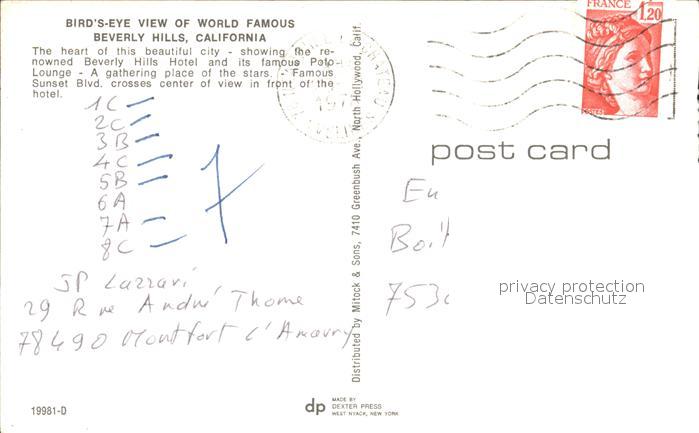 BIRD'S-EYE VIEW OF WORLD FAMOUS
BEVERLY HILLS, CALIFORNIA
The heart of this beautiful city - showing the re-
nowned Beverly Hills Hotel and its famous Polo
Lounge - A gathering place of the stars. - Famous
Sunset Blvd. crosses center of view in front of the
hotel.
1C
2C
3B
4C
5B
6A
7A
8C
7
JP Lazzari
29 Rue André Thome
78490 Montfort l'Amaury
19981-D
Distributed by Mitock & Sons, 7410 Greenbush Ave., North Hollywood, Calif.
dp
MADE BY
DEXTER PRESS
WEST NYACK, NEW YORK
FRANCE 1,20
post card
En
Boit
753
privacy protection
Datenschutz